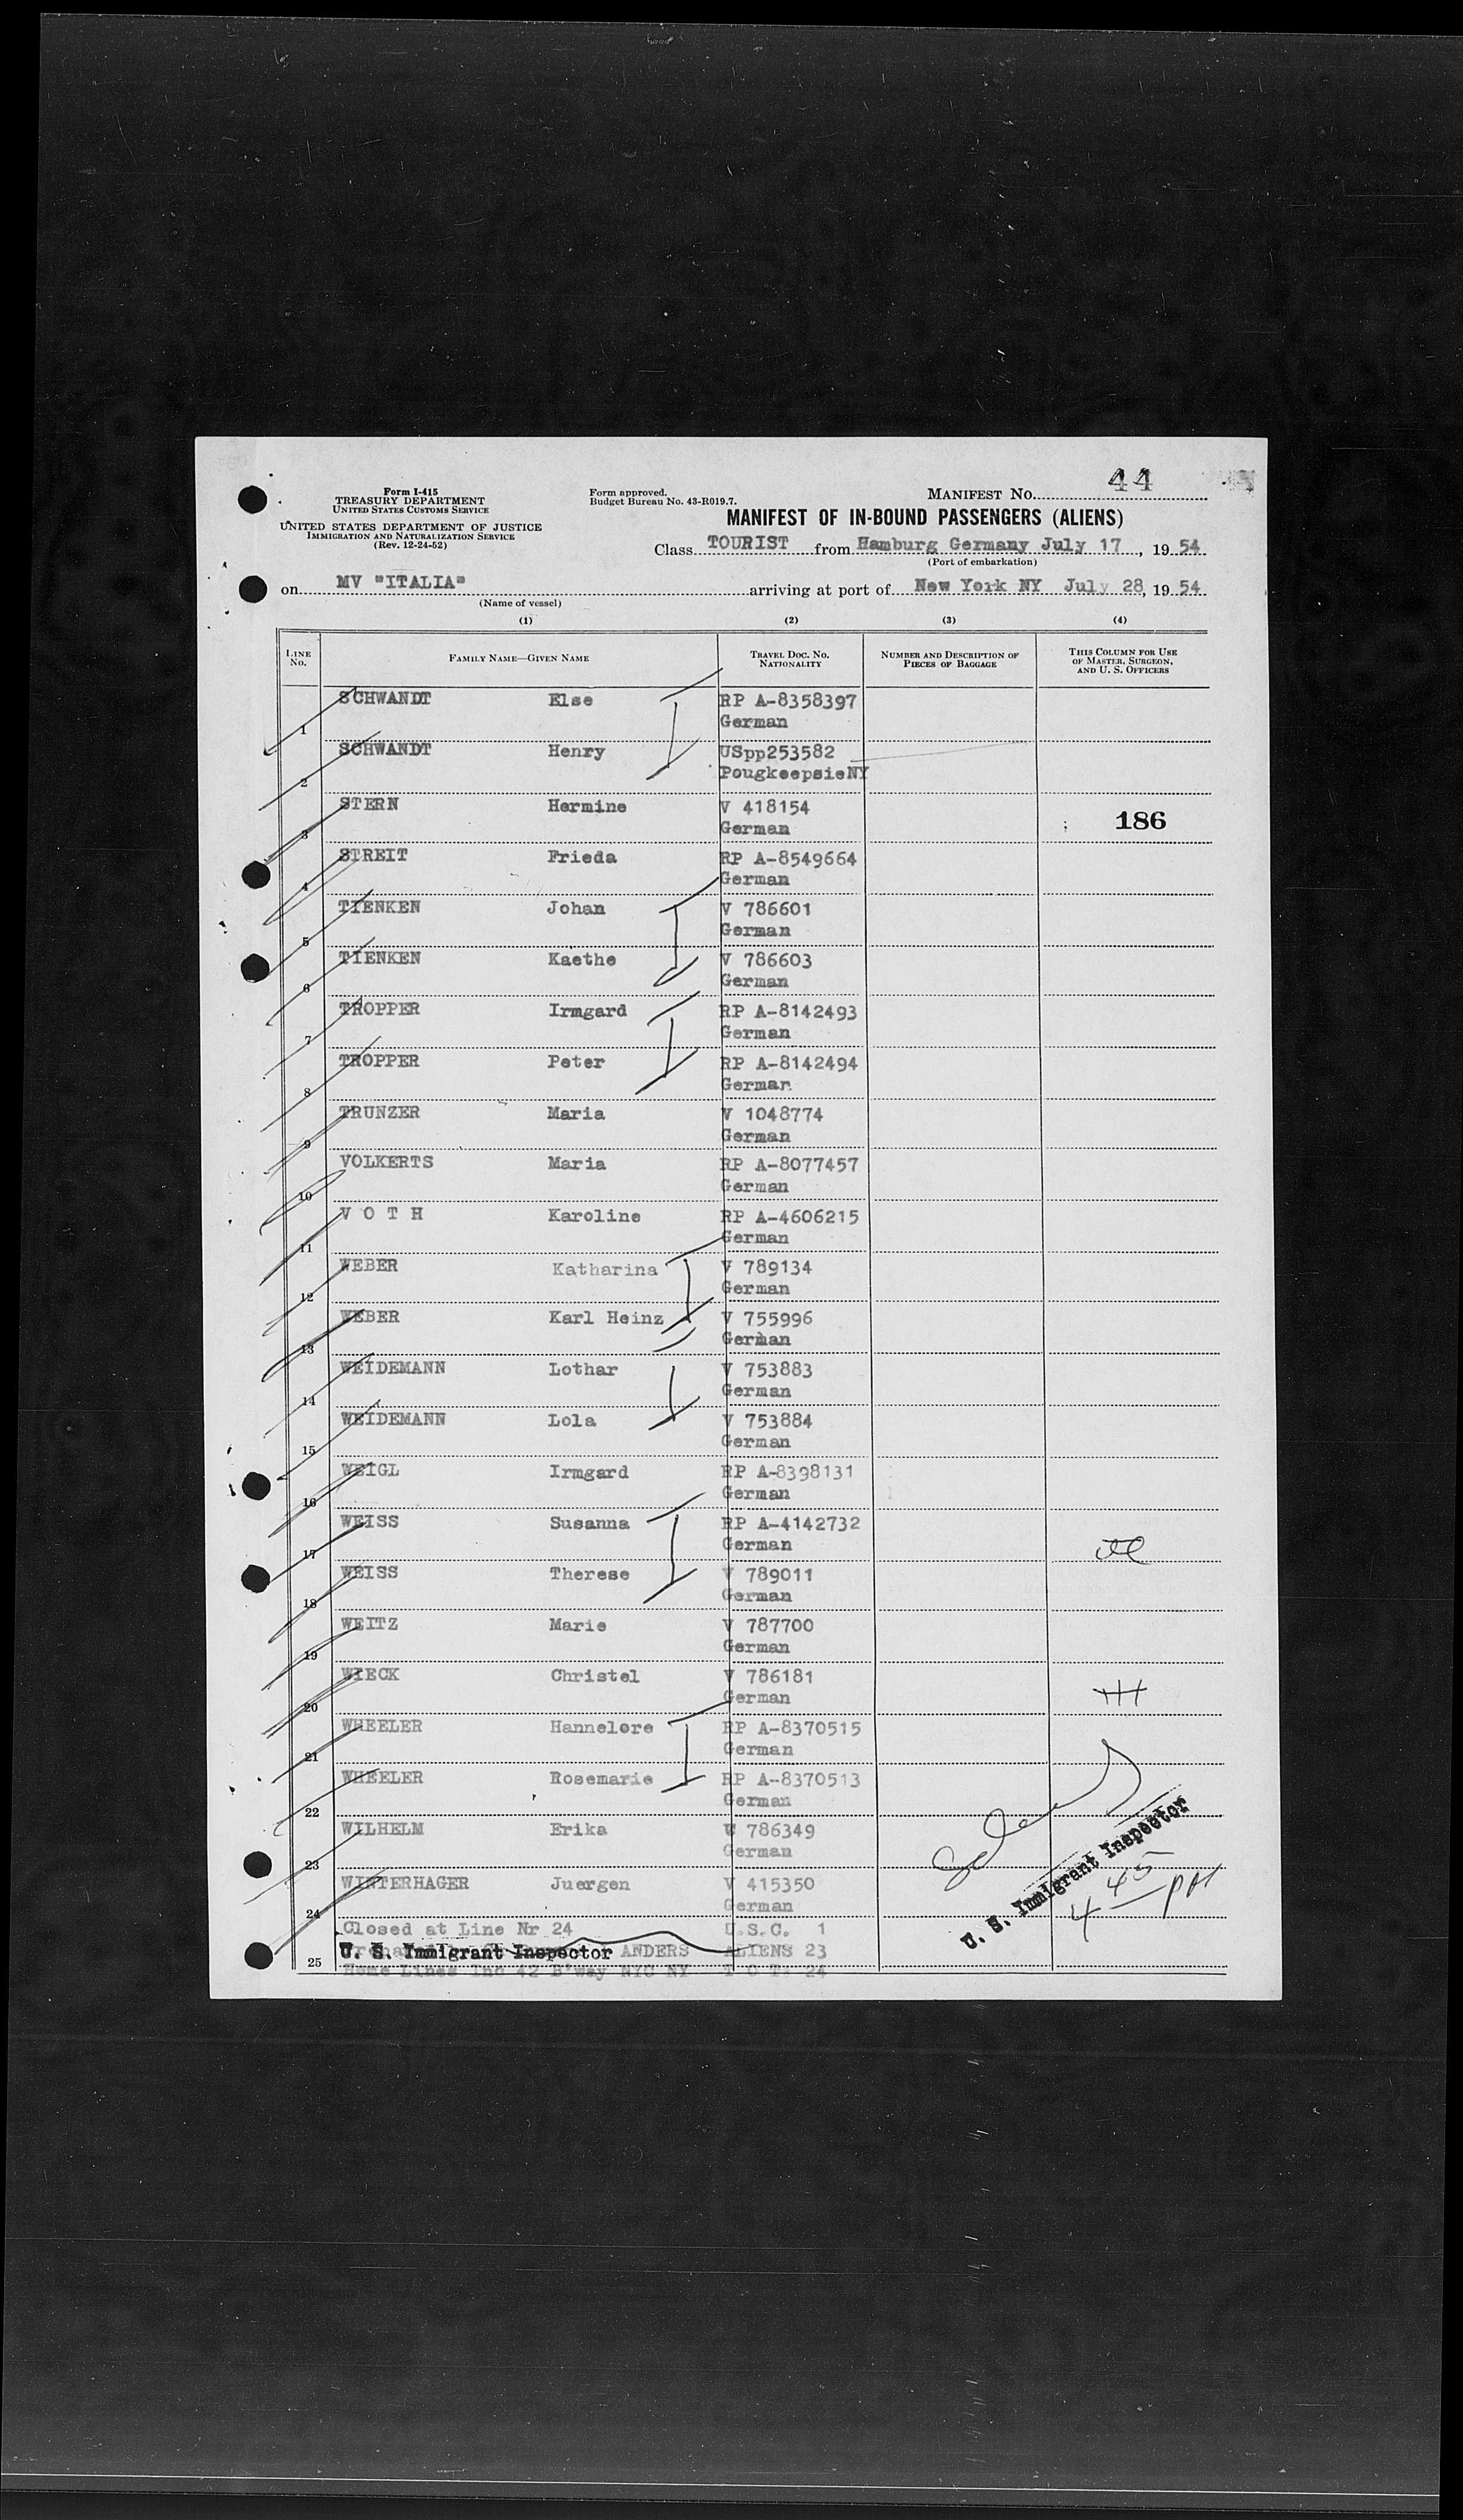 Form I-415
TREASURY DEPARTMENT
UNITED STATES CUSTOMS SERVICE
UNITED STATES DEPARTMENT OF JUSTICE
IMMIGRATION AND NATURALIZATION SERVICE
(Rev. 12-24-52)
Form approved.
Budget Bureau No. 43-R019.7.
MANIFEST NO. 44
MANIFEST OF IN-BOUND PASSENGERS (ALIENS)
Class TOURIST from Hamburg Germany July 17, 19 54
(Port of embarkation)
on MV "ITALIA" arriving at port of New York NY July 28, 19 54
(Name of vessel)
(1) (2) (3) (4)
LINE NO. FAMILY NAME—GIVEN NAME TRAVEL DOC. NO. NATIONALITY NUMBER AND DESCRIPTION OF PIECES OF BAGGAGE THIS COLUMN FOR USE OF MASTER, SURGEON, AND U. S. OFFICERS
1 SCHWANDT Else RP A-8358397
German
2 SCHWANDT Henry USpp253582
PougkeepsieNY
3 STERN Hermine V 418154
German 186
4 STREIT Frieda RP A-8549664
German
5 TIENKEN Johan V 786601
German
6 TIENKEN Kaethe V 786603
German
7 TROPPER Irmgard RP A-8142493
German
8 TROPPER Peter RP A-8142494
German
9 TRUNZER Maria V 1048774
German
10 VOLKERTS Maria RP A-8077457
German
11 V O T H Karoline RP A-4606215
German
12 WEBER Katharina V 789134
German
13 WEBER Karl Heinz V 755996
German
14 WEIDEMANN Lothar V 753883
German
15 WEIDEMANN Lola V 753884
German
16 WEIGL Irmgard RP A-8398131
German
17 WEISS Susanna RP A-4142732
German
18 WEISS Therese V 789011
German
19 WEITZ Marie V 787700
German
20 WIECK Christel V 786181
German
21 WHEELER Hannelore RP A-8370515
German
22 WHEELER Rosemarie RP A-8370513
German
23 WILHELM Erika V 786349
German
24 WINTERHAGER Juergen V 415350
German
U. S. Immigrant Inspector
4 45 PM
Closed at Line Nr 24 U.S.C. 1
25 U. S. Immigrant Inspector ANDERS ALIENS 23
Home Lines Inc 42 B'way NYC NY T O T: 24